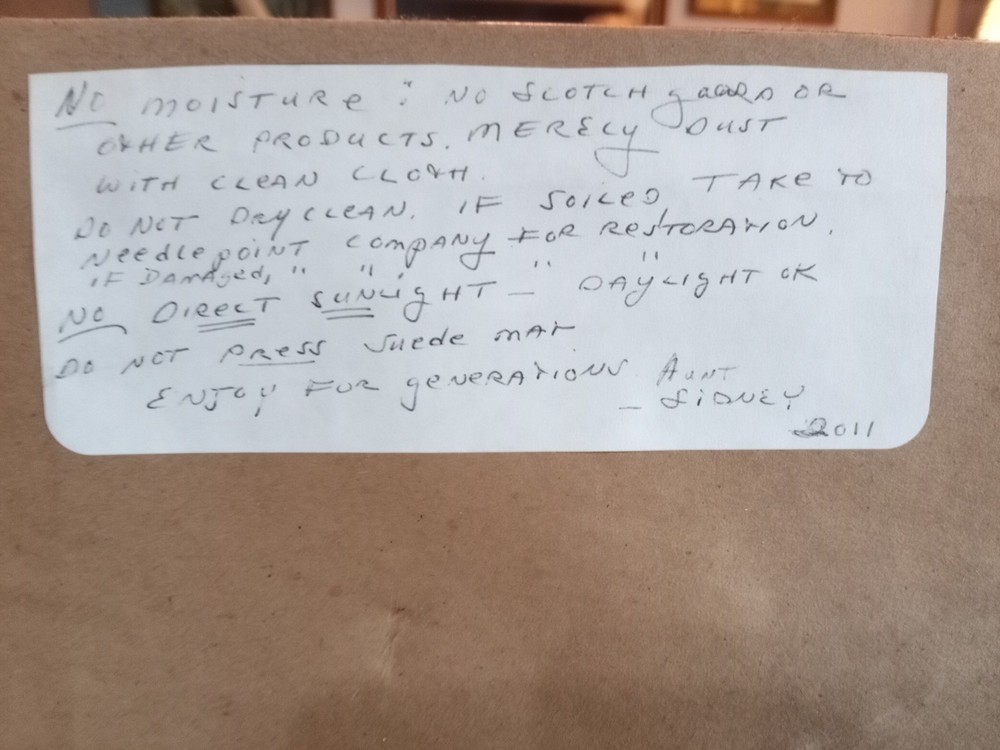 NO MOISTURE: NO SCOTCH gaaRD OR
OTHER PRODUCTS. MERELY DUST
WITH CLEAN CLOTH.
DO NOT DRY CLEAN. IF SOILED, TAKE TO
NeedlepOINT COMPANY FOR RESTORATION.
IF DAMAGED, " " " "
NO DIRECT SUNLIGHT - DAYLIGHT OK
DO NOT PRESS Suede MAT
ENJOY FOR GENERATIONS. AUNT
- SIDNEY
2011